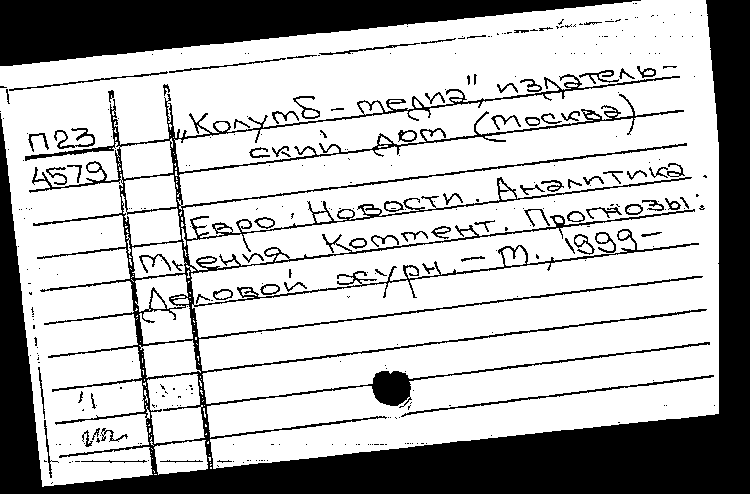 "Колумб - медиа", издатель-
П23
ский дом (Москва)
4579
Евро: Новости. Аналитика.
Мнения. Коммент. Прогнозы:
Деловой журн. - М., 1999-